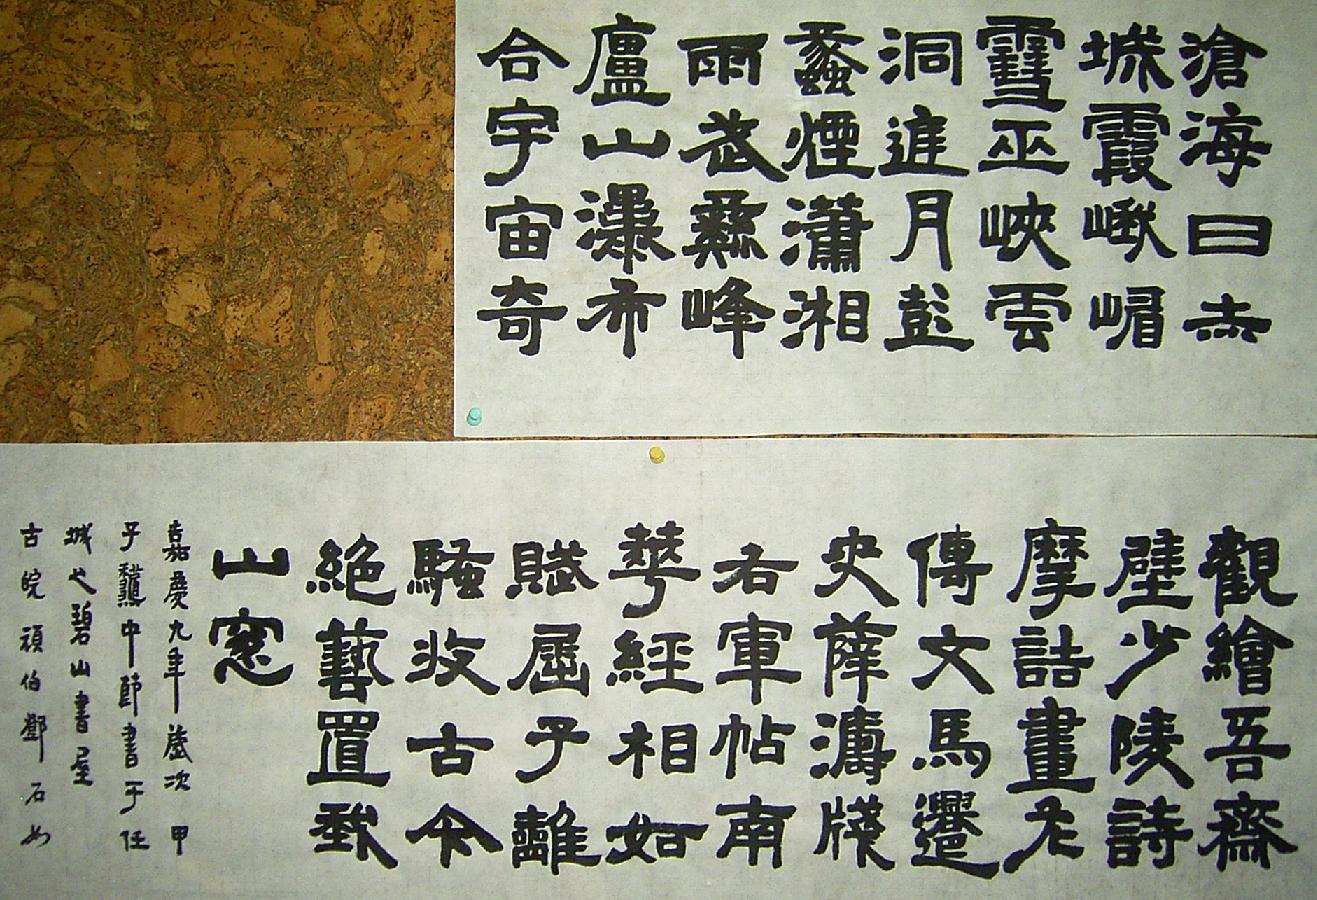 滄海日赤
城霞峨嵋
雪巫峽雲
洞庭月彭
蠡煙瀟湘
雨武彝峰
廬山瀑布
合宇宙奇
觀繪吾齋
壁少陵詩
摩詰畫左
傳文馬遷
史薛濤牋
右軍帖南
華經相如
賦屈子離
騷收古今
絕藝置我
山窓
嘉慶九年歲次甲
子龝中節書于任
城之碧山書屋
古皖頑伯鄧石如